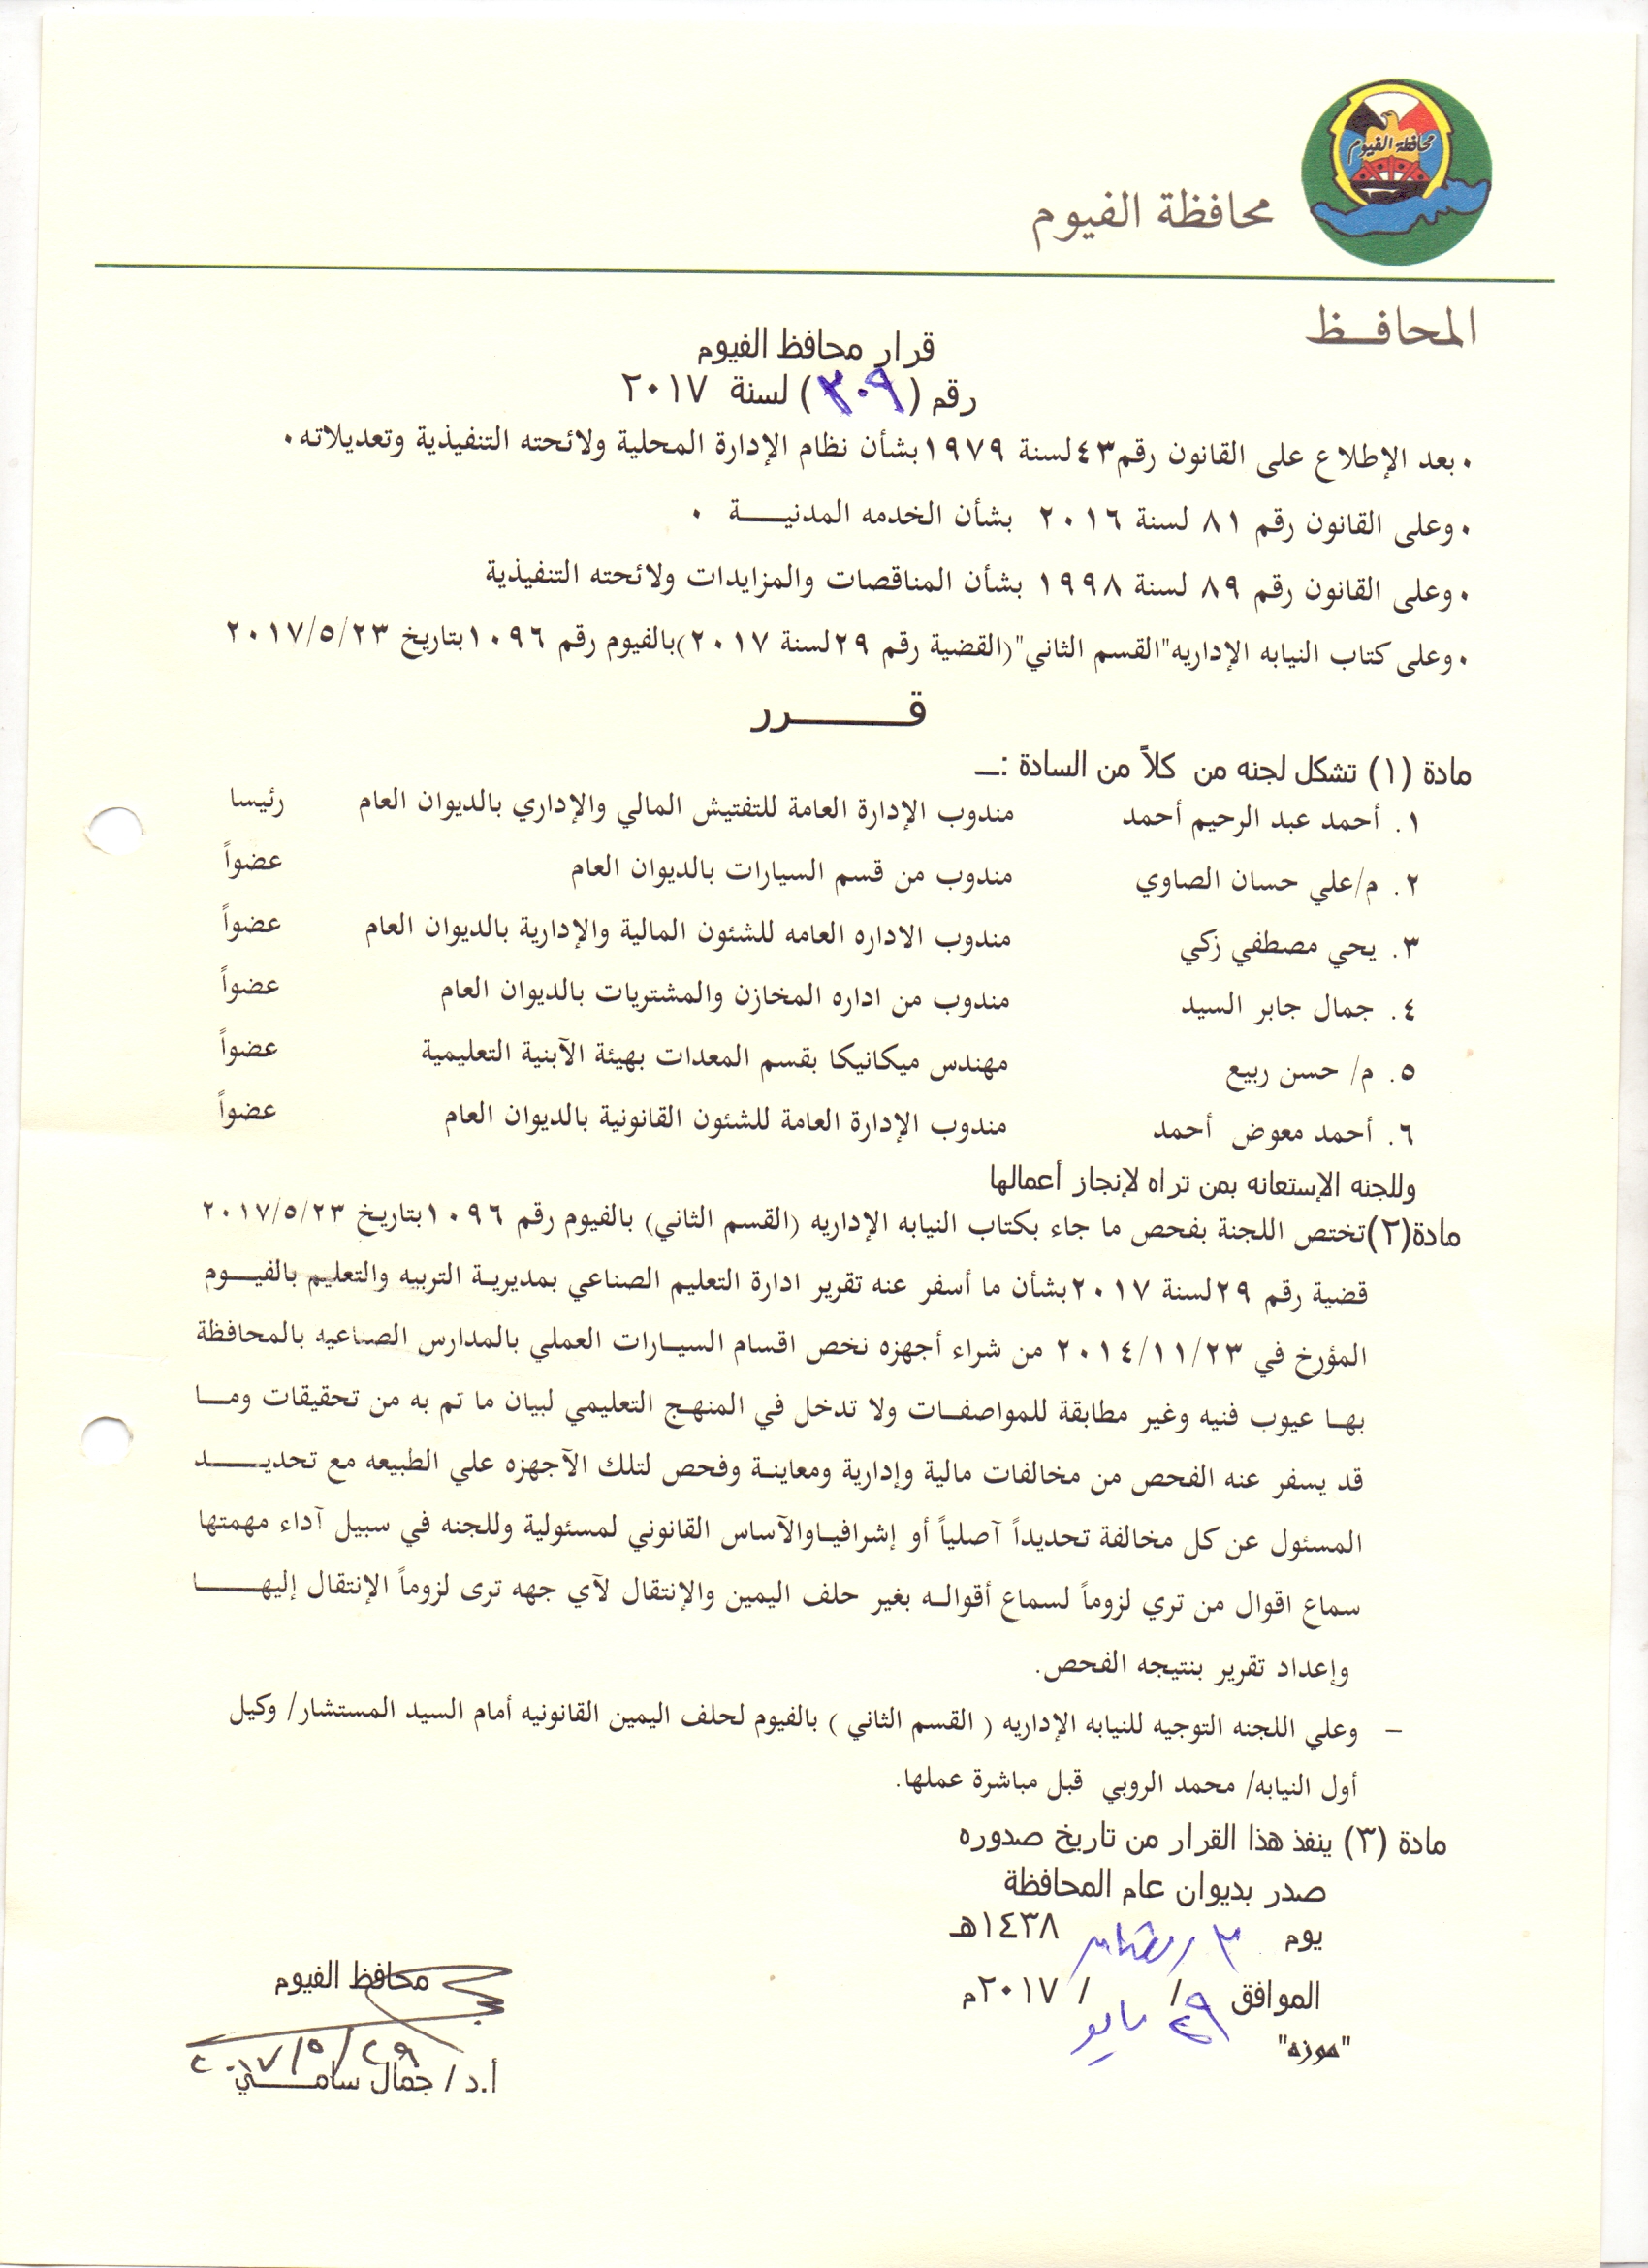 محافظة الفيوم
محافظة الفيوم
المحافــظ
قرار محافظ الفيوم
رقم (٣٠٩) لسنة ٢٠١٧
٠ بعد الإطلاع على القانون رقم٤٣لسنة ١٩٧٩بشأن نظام الإدارة المحلية ولائحته التنفيذية وتعديلاته٠
٠ وعلى القانون رقم ٨١ لسنة ٢٠١٦ بشأن الخدمه المدنيـــــة ٠
٠ وعلى القانون رقم ٨٩ لسنة ١٩٩٨ بشأن المناقصات والمزايدات ولائحته التنفيذية
٠ وعلى كتاب النيابه الإداريه"القسم الثاني"(القضية رقم ٢٩لسنة ٢٠١٧)بالفيوم رقم ١٠٩٦بتاريخ ٢٠١٧/٥/٢٣
قـــــــــرر
مادة (١) تشكل لجنه من كلاً من السادة :ـــ
١. أحمد عبد الرحيم أحمد مندوب الإدارة العامة للتفتيش المالي والإداري بالديوان العام رئيسا
٢. م/علي حسان الصاوي مندوب من قسم السيارات بالديوان العام عضواً
٣. يحي مصطفي زكي مندوب الاداره العامه للشئون المالية والإدارية بالديوان العام عضواً
٤. جمال جابر السيد مندوب من اداره المخازن والمشتريات بالديوان العام عضواً
٥. م/ حسن ربيع مهندس ميكانيكا بقسم المعدات بهيئة الآبنية التعليمية عضواً
٦. أحمد معوض أحمد مندوب الإدارة العامة للشئون القانونية بالديوان العام عضواً
وللجنه الإستعانه بمن تراه لإنجاز أعمالها
مادة(٢)تختص اللجنة بفحص ما جاء بكتاب النيابه الإداريه (القسم الثاني) بالفيوم رقم ١٠٩٦بتاريخ ٢٠١٧/٥/٢٣
قضية رقم ٢٩لسنة ٢٠١٧بشأن ما أسفر عنه تقرير ادارة التعليم الصناعي بمديرية التربيه والتعليم بالفيـــوم
المؤرخ في ٢٠١٤/١١/٢٣ من شراء أجهزه نخص اقسام السيــارات العملي بالمدارس الصناعيه بالمحافظة
بهــا عيوب فنيه وغير مطابقة للمواصفــات ولا تدخل في المنهـج التعليمي لبيان ما تم به من تحقيقات ومـــا
قد يسفر عنه الفحص من مخالفات مالية وإدارية ومعاينــة وفحص لتلك الآجهزه علي الطبيعه مع تحديـــــــد
المسئول عن كل مخالفة تحديداً آصلياً أو إشرافيــاوالآساس القانوني لمسئولية وللجنه في سبيل آداء مهمتها
سماع اقوال من تري لزوماً لسماع أقوالــه بغير حلف اليمين والإنتقال لآي جهه ترى لزوماً الإنتقال إليهـــــــا
وإعداد تقرير بنتيجه الفحص.
– وعلي اللجنه التوجيه للنيابه الإداريه ( القسم الثاني ) بالفيوم لحلف اليمين القانونيه أمام السيد المستشار/ وكيل
أول النيابه/ محمد الروبي قبل مباشرة عملها.
مادة (٣) ينفذ هذا القرار من تاريخ صدوره
صدر بديوان عام المحافظة
يوم ٣ رمضان ١٤٣٨هـ
الموافق ٢٩ / مايو / ٢٠١٧م
"موزه"
محافظ الفيوم
٢٠١٧/٥/٢٩
أ.د / جمال سامـــــي